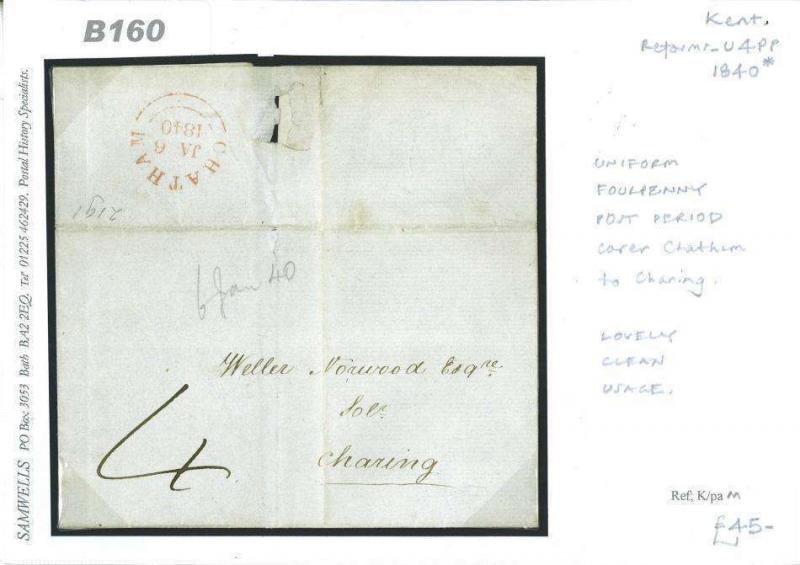 B160
Kent.
Reforms - U4PP
1840*
SAMWELLS PO Box 3053 Bath BA2 2EQ. Tel 01225 462429. Postal History Specialists.
CHATHAM
JA 6
1840
6 Jan 40
Weller Norwood Esqre
Solr
Charing
4
UNIFORM
FOURPENNY
POST PERIOD
cover Chatham
to Charing.
LOVELY
CLEAN
USAGE.
Ref; K/pa M
£45-